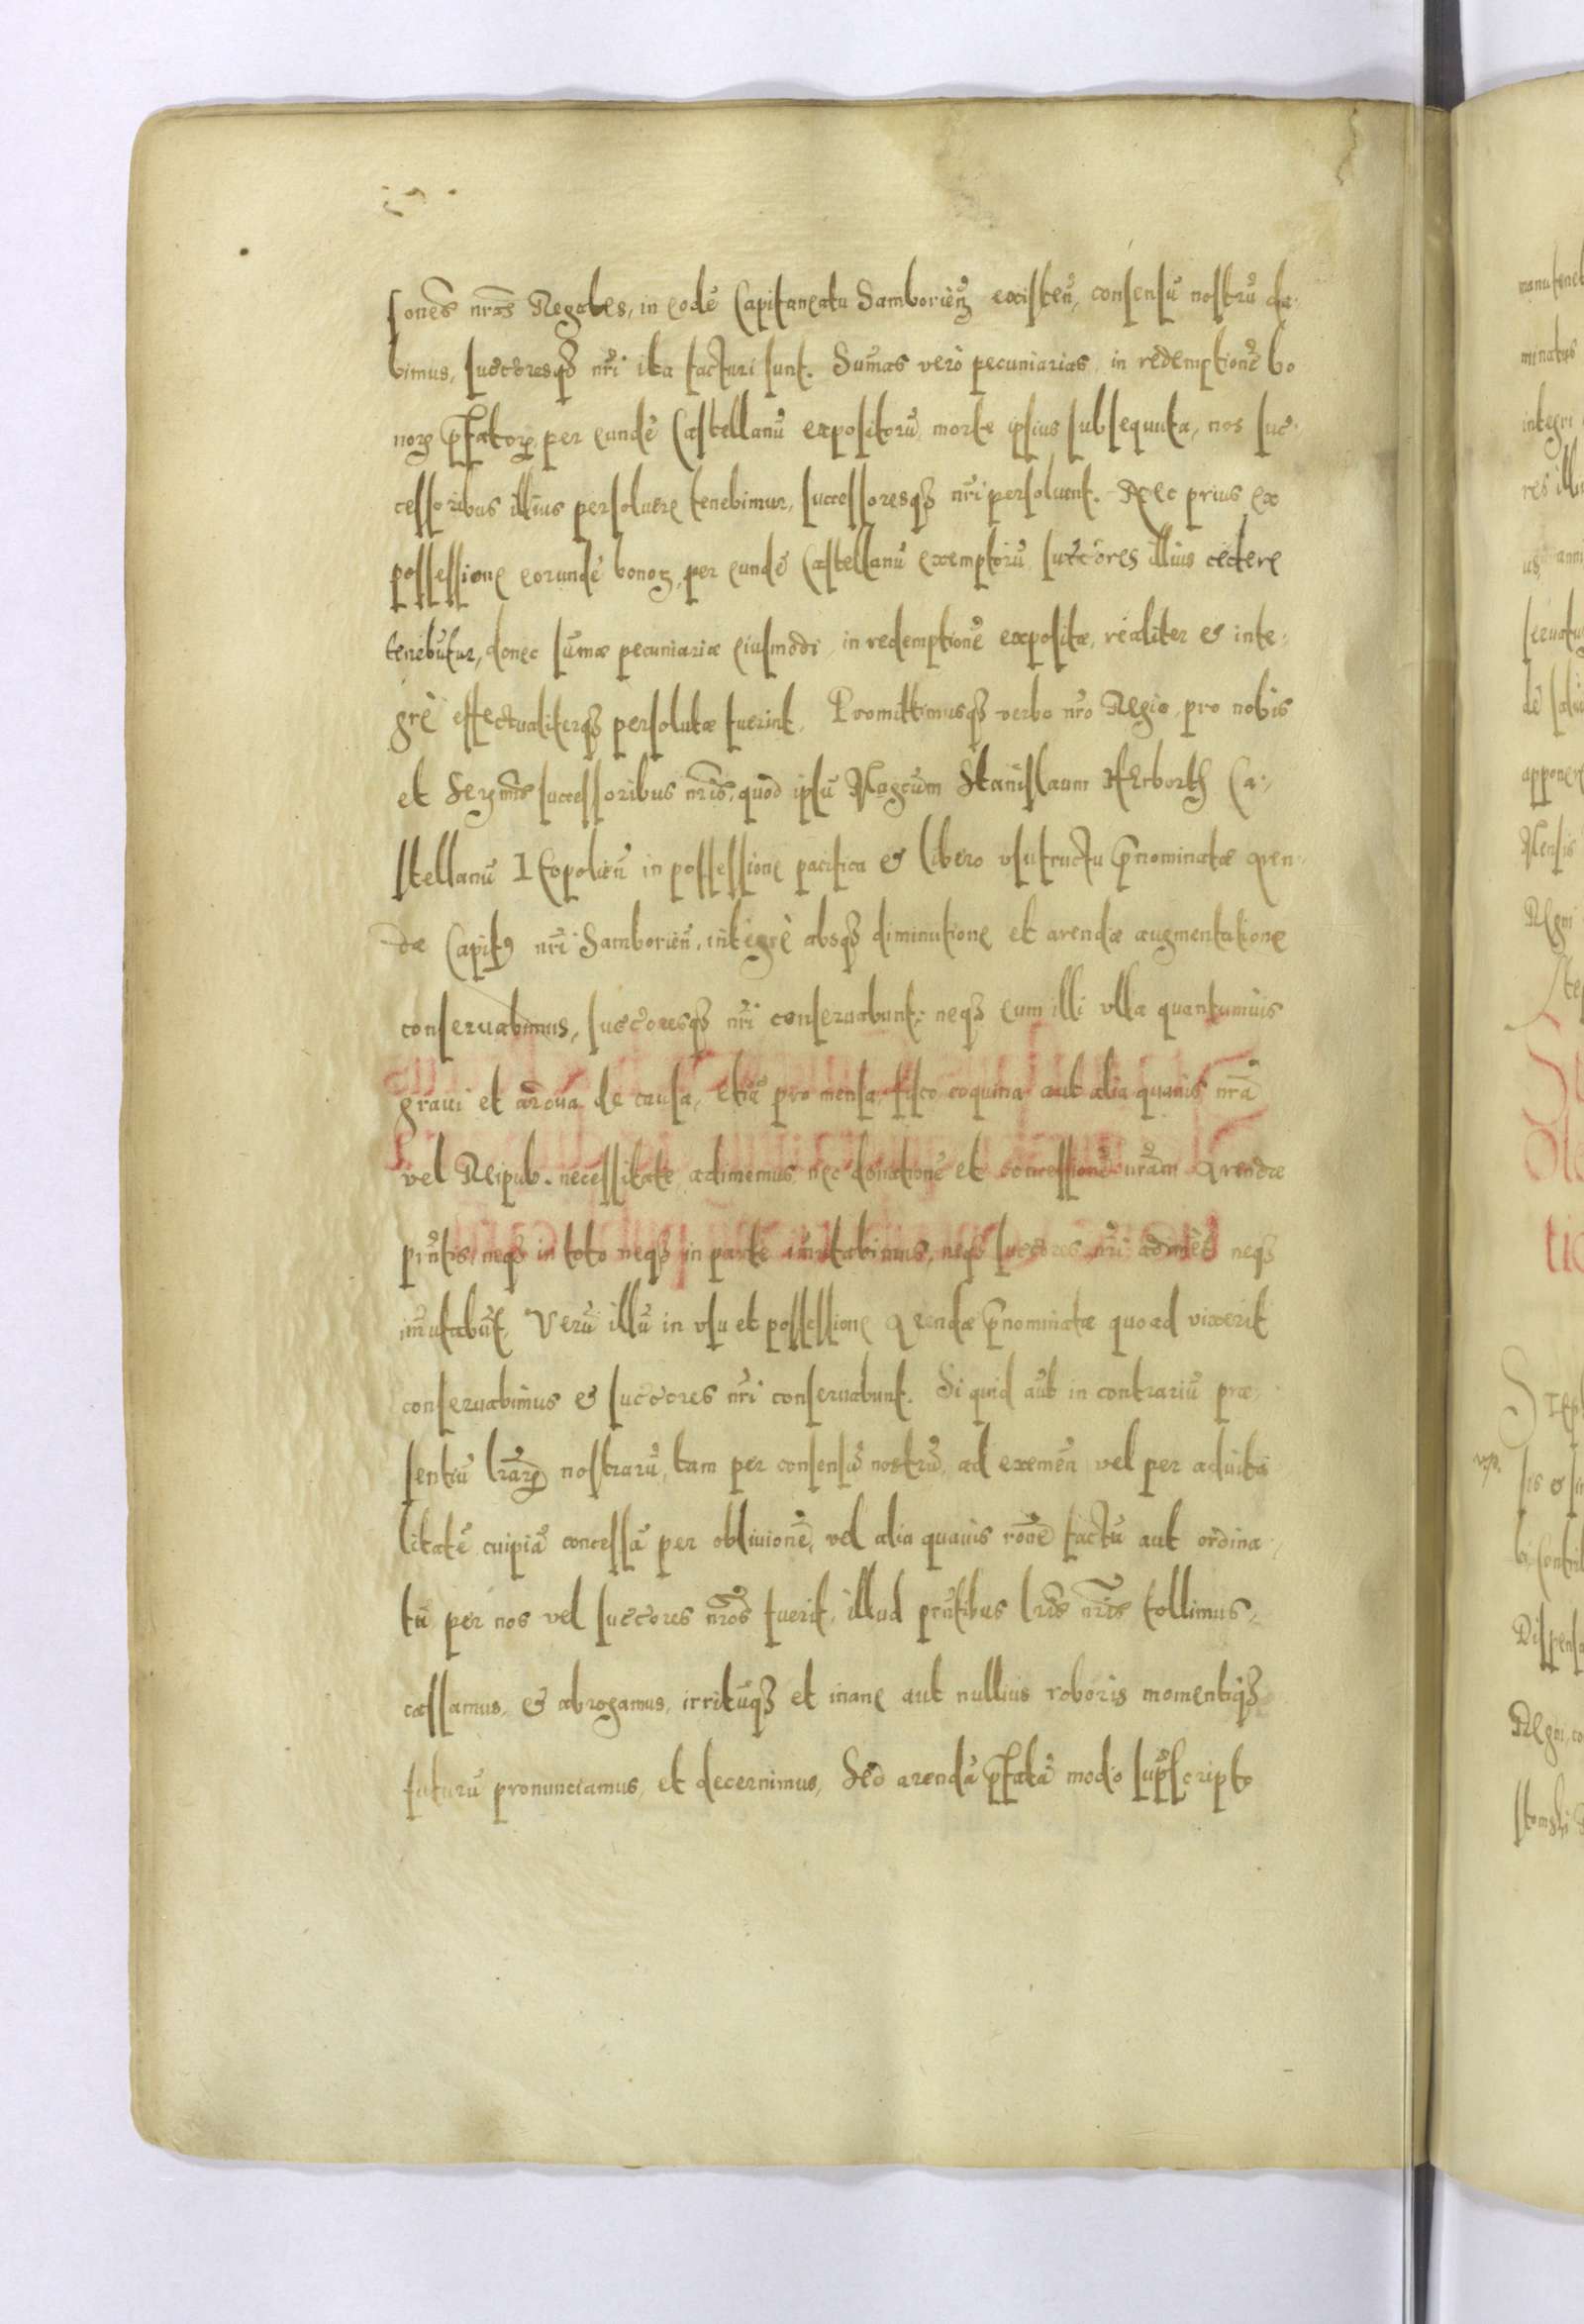 sones nras Regales, in eodē Capitaneatu Samborien̄ existen̄, consensū nostrū da-
bimus, succoresq3 nr̄i ita facturi sunt. Sum̄as verò pecuniarias, in redemptionē bo
noꝝ p̄fatoꝝ per eundē Castellanū expositorū, morte ipsius subsequuta, nos suc-
cessoribus illius persoluere tenebimur, successoresq3 nr̄i persoluent. Nec prius ex
possessione eorundē bonoꝝ, per eundē Castellanū exemptorū succ̄ores illius cedere
tenebūtur, donec sum̄æ pecuniariæ eiusmodi, in redemptionē expositæ, realiter & inte-
grè effectualiterq3 persolutæ fuerint. Promittimusq3 verbo nr̄o Regio, pro nobis
et Serm̄is successoribus nr̄is, quòd ipsū Mag̅cum Stanislaum HErborth Ca-
stellanū LEopolien̄ in possessione pacifica & libero vsufructu p̄nominatæ aren-
dæ Capit9 nr̄i Samborien̄, integrè absq3 diminutione et arendæ augmentatione
conseruabimus, succ̄oresq3 nr̄i conseruabunt: neq3 eum illi vlla quantumuis
graui et ardua de causa, etiā pro mensa, fisco, coquina aut alia quauis nr̄a
vel Reipub. necessitate adimemus, nec donationē et concessionē nr̄am Arendæ
prn̄tis, neq3 in toto neq3 in parte im̄utabimus, neq3 succ̄ores nr̄i adimēt neq3
im̄utabūt, Verū illū in vsu et possessione Arendæ p̄nominatæ quoad vixerit
conseruabimus & succ̄ores nr̄i conseruabunt. Si quid aūt in contrariū præ-
sentiū lr̄arꝝ nostrarū, tam per consensū nostrū, ad eximen̄ vel per aduita
litatē cuipiā concessā per obliuionē, vel alia quauis ron̄e factū aut ordina-
tū per nos vel succ̄ores nr̄os fuerit, illud prn̄tibus lr̄is nr̄is tollimus,
cassamus, & abrogamus, irritūq3 et inane aut nullius roboris momentiq3
futurū pronunciamus, et decernimus, Sed arendā p̄fatā modo sup̄scripto